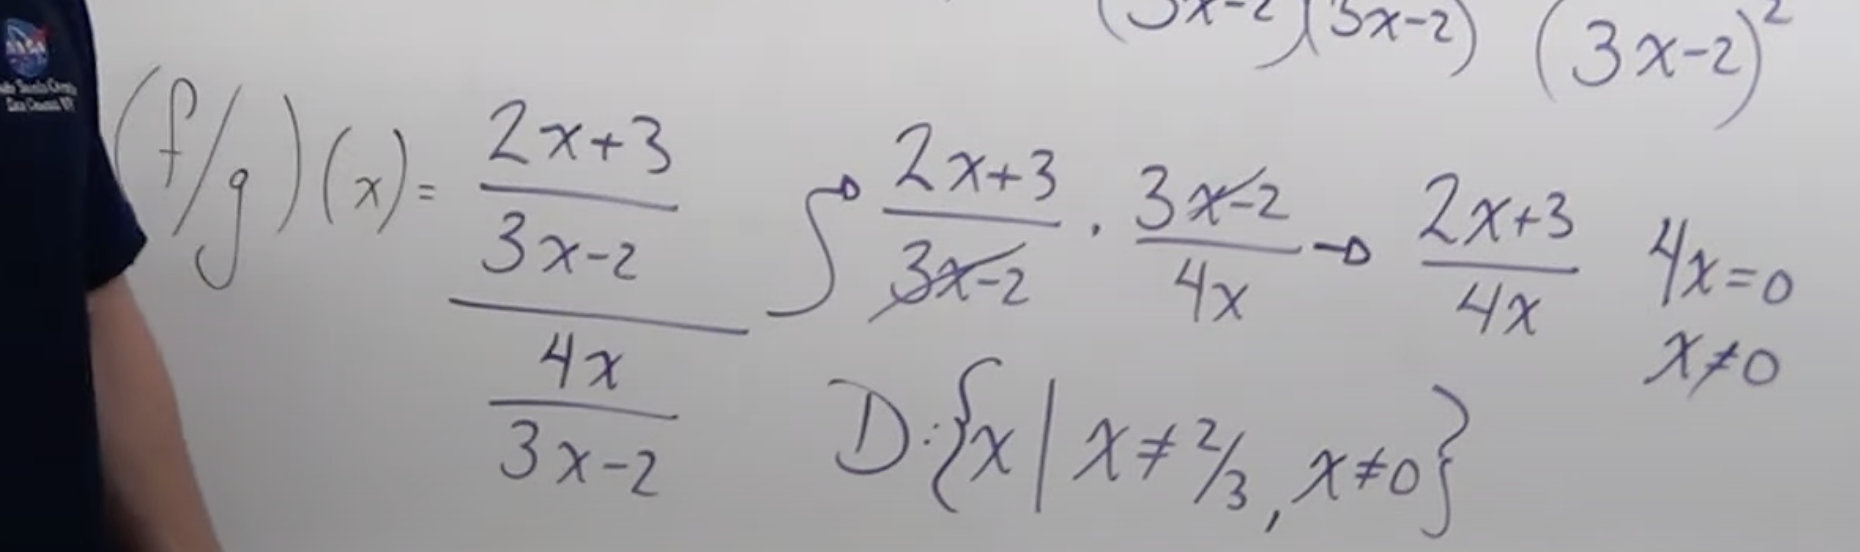 (3x-2)(3x-2) (3x-2)²
NASA
(f/g)(x) = ((2x+3)/(3x-2))/((4x)/(3x-2)) → (2x+3)/(3x-2) · (3x-2)/(4x) → (2x+3)/(4x) 4x=0
x≠0
D:{x | x≠2/3, x≠0}